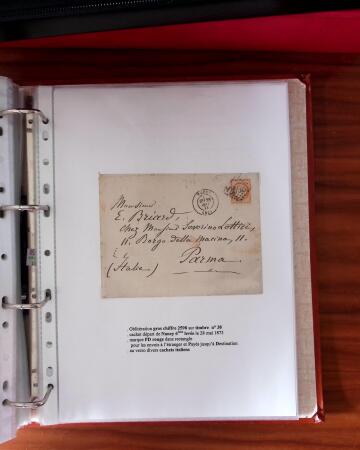 Monsieur
E. Briard,
chez Monsieur Severino Lottici,
11. Borgo della marina, 11.
Parma
(Italie)
Oblitération gros chiffre 2598 sur timbre n° 38
cachet départ de Nancy 6ème levée le 28 mai 1873
marque PD rouge dans rectangle
pour les envois à l'étranger et Payés jusqu'à Destination
au verso divers cachets italiens